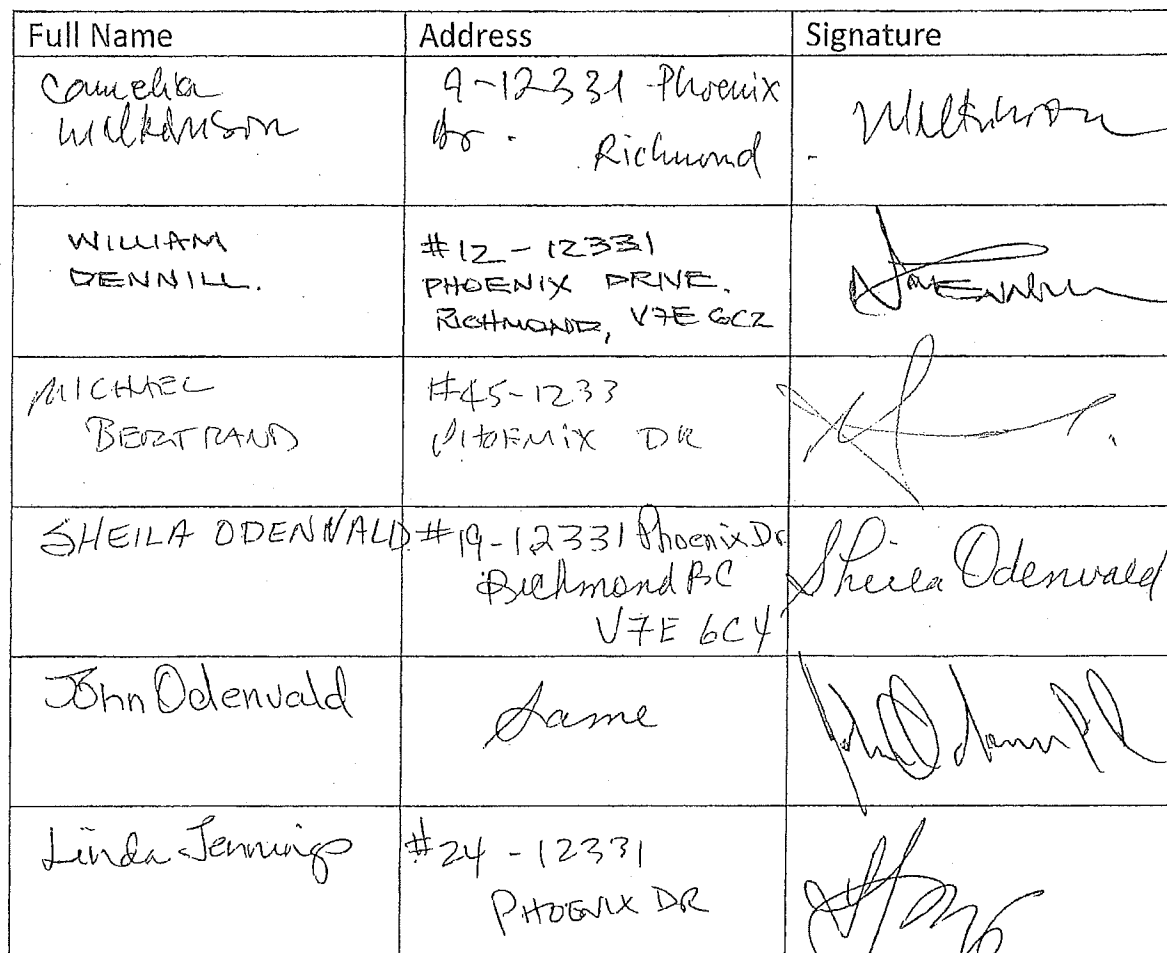 Full Name Address Signature
Camelia
Wilkinson
9-12331 Phoenix
Dr.
Richmond
Wilkinson
WILLIAM
DENNILL.
#12-12331
PHOENIX DRIVE.
RICHMOND, V7E 6C2
MICHAEL
BERTRAND
#45-1233
PHOENIX DR
SHEILA ODENWALD
#19-12331 Phoenix Dr
Richmond BC
V7E 6C4
Sheila Odenwald
John Odenvald
Same
Linda Jennings
#24-12331
PHOENIX DR